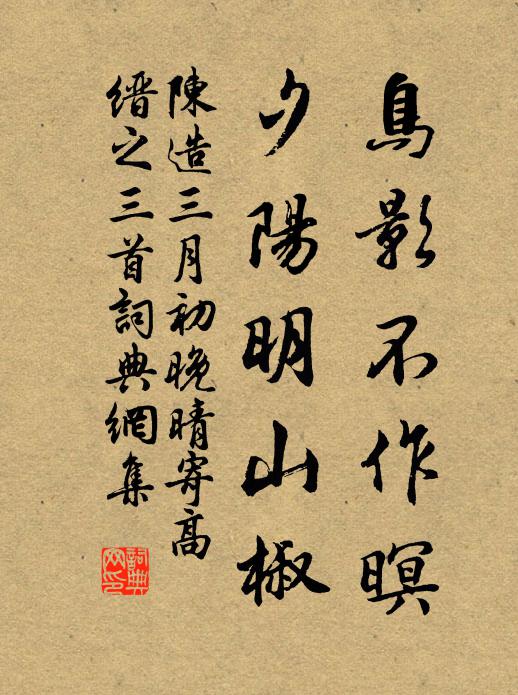 鳥影不作暝
夕陽明山椒
陳造三月初晚晴寄高
縉之三首詞典網集
詞典網印